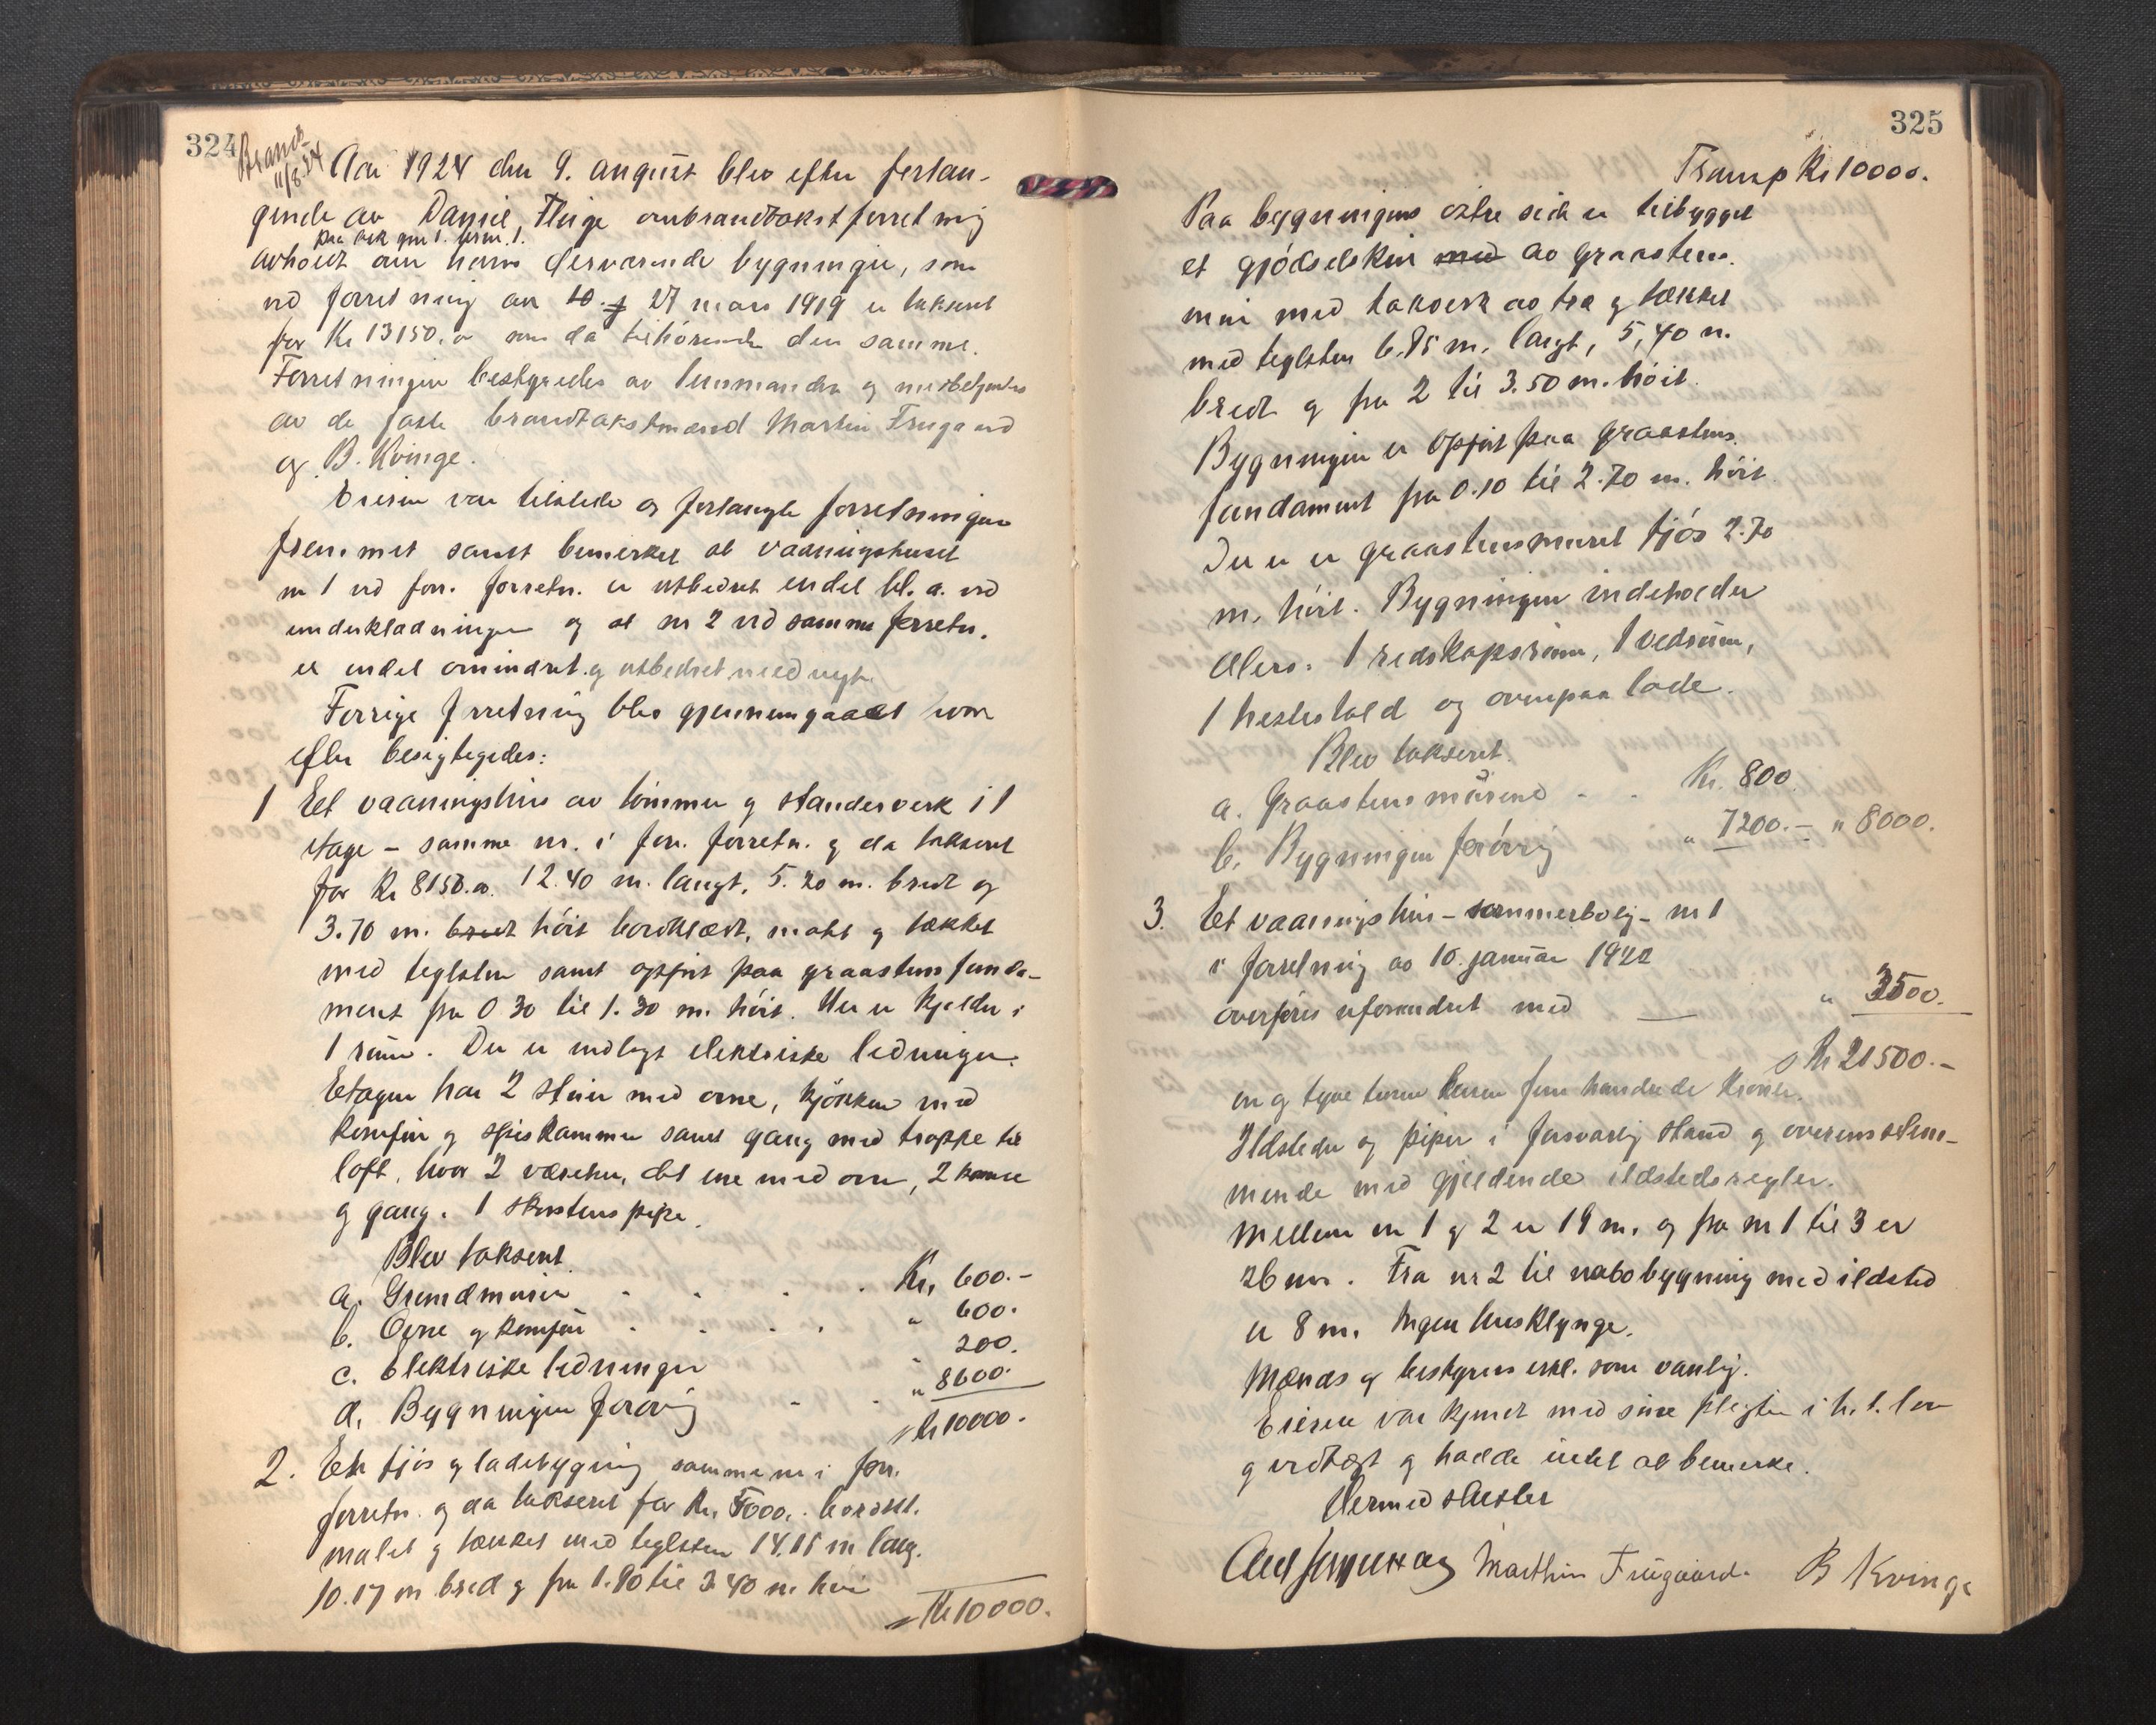 324
Brandt
11/8.24
Aar 1924 den 9. august blev efter forlan-
gende av Daniel Fluge ombrandtakstforretning
paa ask gnr 1. brnr. 1.
avholdt over hans derværende bygninger, som
ved forretning av 10. og 27 mars 1919 er taksert
for Kr 13150.00 som da tilhørende den samme.
Forretningen bestyredes av lensmanden og medbetjentes
av de faste brandtakstmænd Martin Frugaard
og B. Kvinge.
Eieren var tilstede og forlangte forretningen
fremmet samt bemerket at vaaningshuset
nr 1 ved forr. forretn. er utbedret endel bl. a. ved
underkladningen og at nr 2 ved samme forretn.
er endel omindret og utbedret med nyt.
Forrige forretning blev gjennemgaaet hvor
efter besigtigedes:
1 Et vaaningshus av tømmer og standerverk i 1
etage - samme nr. i forr. forretn. og da taksert
for Kr 8150.00. 12.40 m. langt, 5.20 m. bredt og
3.70 m. bredt høit bordklædt, malt og tækket
med teglsten samt opført paa graastens funda-
ment fra 0 30 til 1.30 m. høit. Her er kjelder i
1 rum. Der er indlagt elektriske ledninger.
Etagen har 2 stuer med ovne, kjøkken med
komfur og spiskammer samt gang med trappe til
loft, hvor 2 værelser, det ene med ovn, 2 kover
og gang. 1 skorstenspipe.
Blev taksert.
a. Grundmuren . . . . Kr. 600.-
b. Ovne og komfur . . . . " 600.
c. Elektriske ledninger " 200.
d. Bygningen forøvrig - . " 8600.
Kr 10000.
2. Et fjøs og ladebygning samme nr i forr.
forretn. og da taksert for Kr. 5000.- bordkl.
malet og tækket med teglsten 14.15 m lang.
10.17 m bred og fra 1.80 til 3.40 m. høi
Kr 10000.
325
Transp Kr 10000.
Paa bygningens østre side er tilbygget
et gjødselskur med av graastens
mur med takverk av træ og tækket
med teglsten 6.85 m. langt, 5,40 m.
bredt og fra 2 til 3.50 m. høit.
Bygningen er opført paa graastens
fundament fra 0.10 til 2.70 m. høit
Der er er graastensmuret fjøs 2.70
m. høit. Bygningen indeholder
ellers: 1 redskapsrum, 1 vedrum,
1 hestestald og ovenpaa lade.
Blev taksert.
a. Graastensmurene . . Kr. 800.
b. Bygningen forøvrig " 7200.- " 8000.
3. Et vaaningshus - sommerbolig - nr 1
i forretning av 10. januar 1922
overføres uforandret med " 3500.
Kr 21500.-
en og tyve tusen fem hundrede kroner.
Ildsteder og piper i forsvarlig stand og overensstem-
mende med gjeldende ildstedsregler.
Mellem nr 1 og 2 er 19 m. og fra nr 1 til 3 er
26 m. Fra nr 2 til nabobygning med ildsted
er 8 m. Ingen husklynge.
Mænds og bestyrers erkl. som vanlig.
Eieren var kjendt med sine pligter i h. t. lov
og vedtægt og hadde intet at bemerke.
Hermed sluttet
Marthin Frugaard. B Kvinge